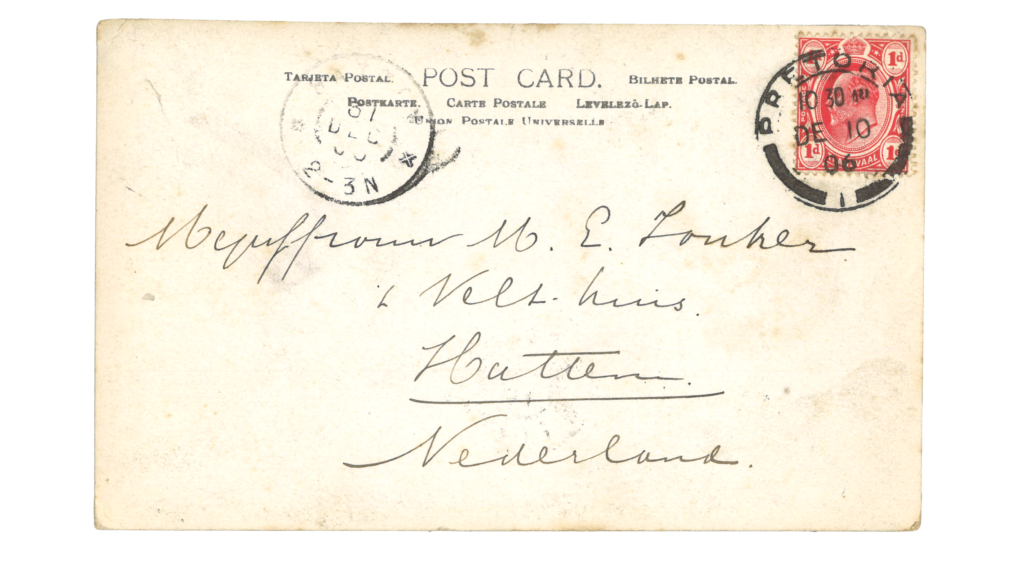 TARJETA POSTAL. POST CARD. BILHETE POSTAL.
POSTKARTE. CARTE POSTALE LEVELEZÖ-LAP.
UNION POSTALE UNIVERSELLE
DEC
2-3N
PRETORIA
10 30 AM
DE 10
06
1
1d
1d
Mejuffrouw M. E. Jonker
Velt-huis.
Hattem.
Nederland.